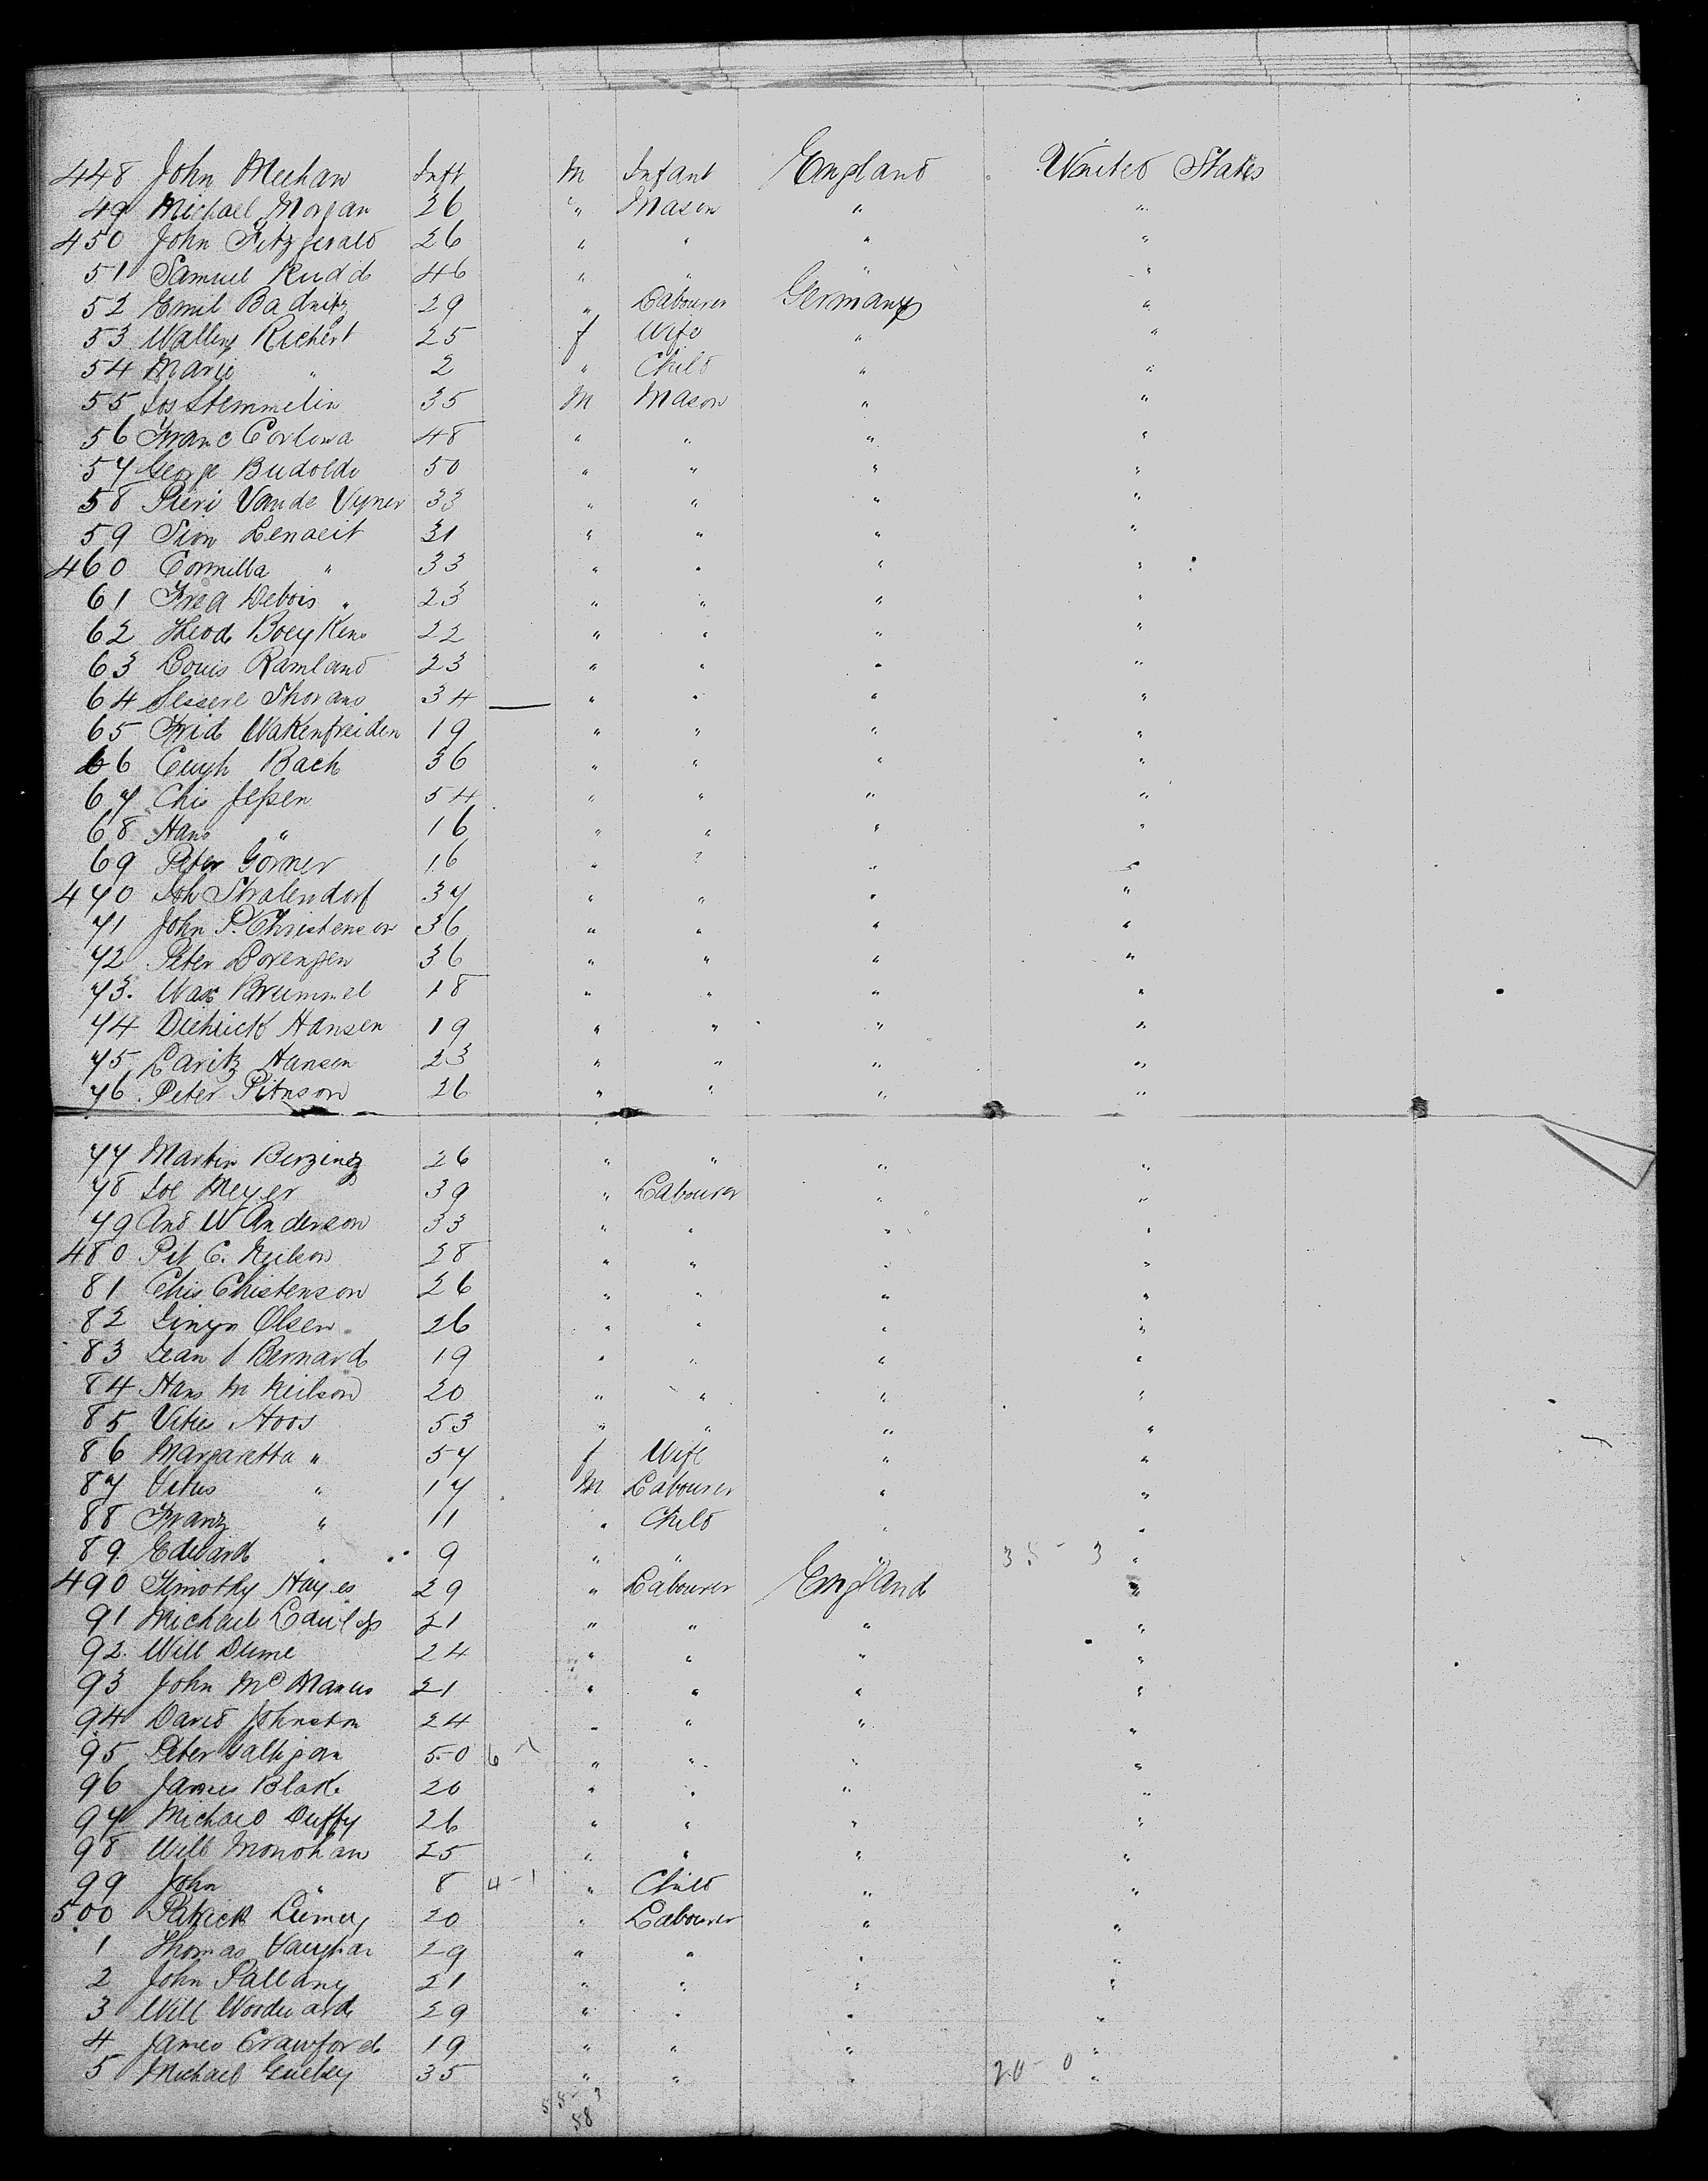 448 John Meehan Inft M Infant England United States
49 Michael Morgan 26 " Mason " "
450 John Fitzgerald 26 " " " "
51 Samuel Rudd 46 " " " "
52 Emil Badnitz 29 " Labourer Germany "
53 Wallery Richert 25 f Wife " "
54 Marie " 2 " Child " "
55 Jos Stemmelin 35 M Mason " "
56 Franc Corlona 48 " " " "
57 George Budoldi 50 " " " "
58 Pieri Van de Vyner 33 " " " "
59 Sion Lenaeit 31 " " " "
460 Cormilla " 33 " " " "
61 Fred Debois " 23 " " " "
62 Theod Boeykens 22 " " " "
63 Louis Ramland 23 " " " "
64 Thorans 34 " " " "
65 Frid Wakenfreiden 19 " " " "
66 Bach 36 " " " "
67 Chis Jessen 54 " " " "
68 Hans " 16 " " " "
69 Peter Gorner 16 " " " "
470 Joh Stralendorf 37 " " " "
71 John P. Christenson 36 " " " "
72 Peter Dorensen 36 " " " "
73. Max Brummel 18 " " " "
74 Diehrick Hansen 19 " " " "
75 Laritz Hansen 23 " " " "
76 Peter Pitnson 26 " " " "
77 Martin Berzinez 26 " " " "
78 Joe Meyer 39 " Labourer " "
79 And W Anderson 33 " " " "
480 Pit C. Neilson 28 " " " "
81 Chis Chistenson 26 " " " "
82 Olsen 26 " " " "
83 Jean J Bernard 19 " " " "
84 Hans M Neilson 20 " " " "
85 Vitus Hoos 53 " " " "
86 Margaretta " 57 f Wife " "
87 Vitus " 17 M Labourer " "
88 Franz " 11 " Child " "
89 Edward " 9 " " " 35 - 3 "
490 Timothy Hayes 29 " Labourer England "
91 Michael 21 " " " "
92. Will Dume 24 " " " "
93 John McManus 21 " " " "
94 David Johnston 24 " " " "
95 Peter Galligan 50 6 - 1 " " " "
96 James Blake 20 " " " "
97 Michael Duffy 26 " " " "
98 Will Monohan 25 " " " "
99 John " 8 4 - 1 " Child " "
500 Patrick 20 " Labourer " "
1 Thomas Vaughan 29 " " " "
2 John Pallany 21 " " " "
3 Will Woodward 29 " " " "
4 James Crawford 19 " " " "
5 Michael 35 " " " 20 - 0 "
55 - 3
58